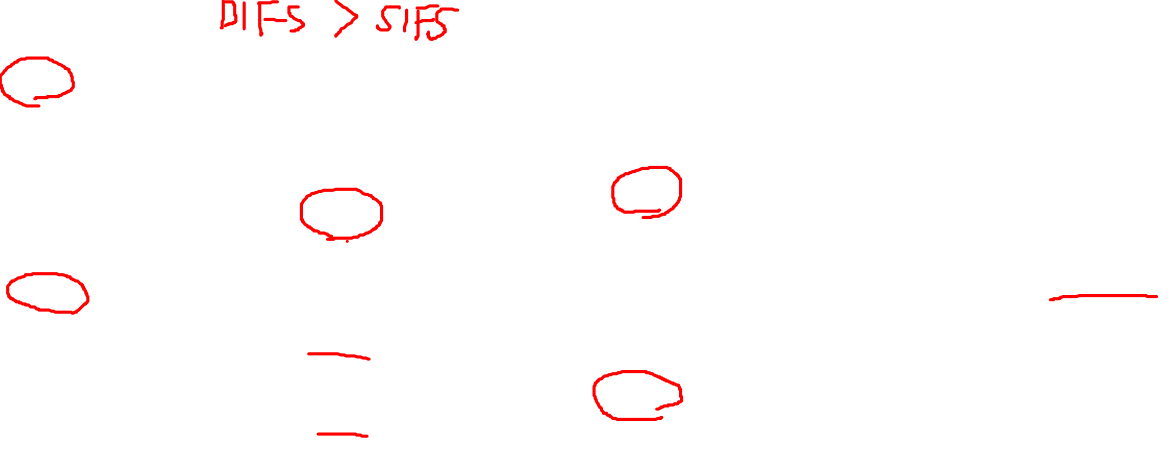 DIFS > SIFS